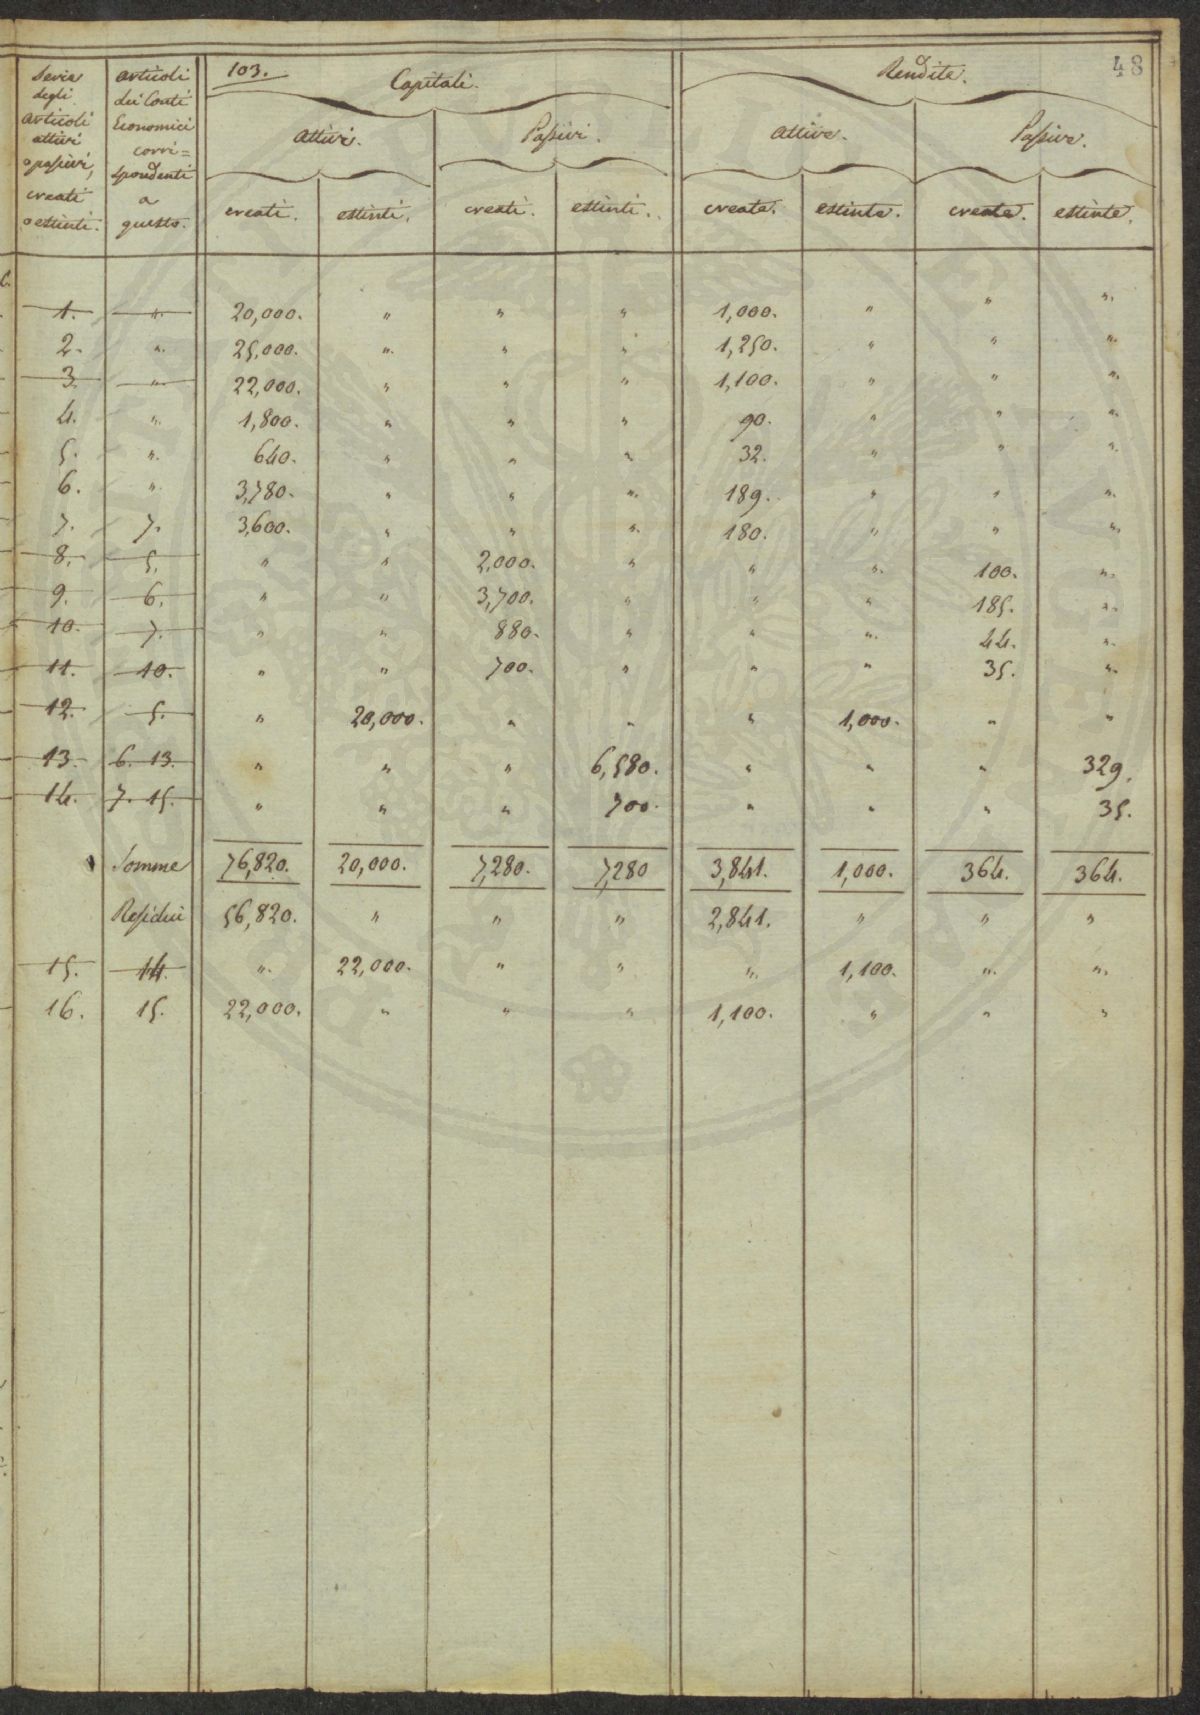 48
103.
Capitali. Rendite.
Attivi. Passivi. Attive. Passive.
Serie degli Articoli attivi o passivi, creati o estinti.
Articoli dei Conti Economici corri=spondenti a questo.
creati. estinti. creati. estinti. create. estinte. create. estinte.
1. " 20,000. " " " 1,000. " " "
2. " 25,000. " " " 1,250. " " "
3. " 22,000. " " " 1,100. " " "
4. " 1,800. " " " 90. " " "
5. " 640. " " " 32. " " "
6. " 3,780. " " " 189. " " "
7. 7. 3,600. " " " 180. " " "
8. 5. " " 2,000. " " " 100. "
9. 6. " " 3,700. " " " 185. "
10. 7. " " 880. " " " 44. "
11. 10. " " 700. " " " 35. "
12. 5. " 20,000. " " " 1,000. " "
13. 6. 13. " " " 6,580. " " " 329.
14. 7. 15. " " " 700. " " " 35.
Somme 76,820. 20,000. 7,280. 7,280 3,841. 1,000. 364. 364.
Residui 56,820. " " " 2,841. " " "
15. 14. " 22,000. " " " 1,100. " "
16. 15. 22,000. " " " 1,100. " " "